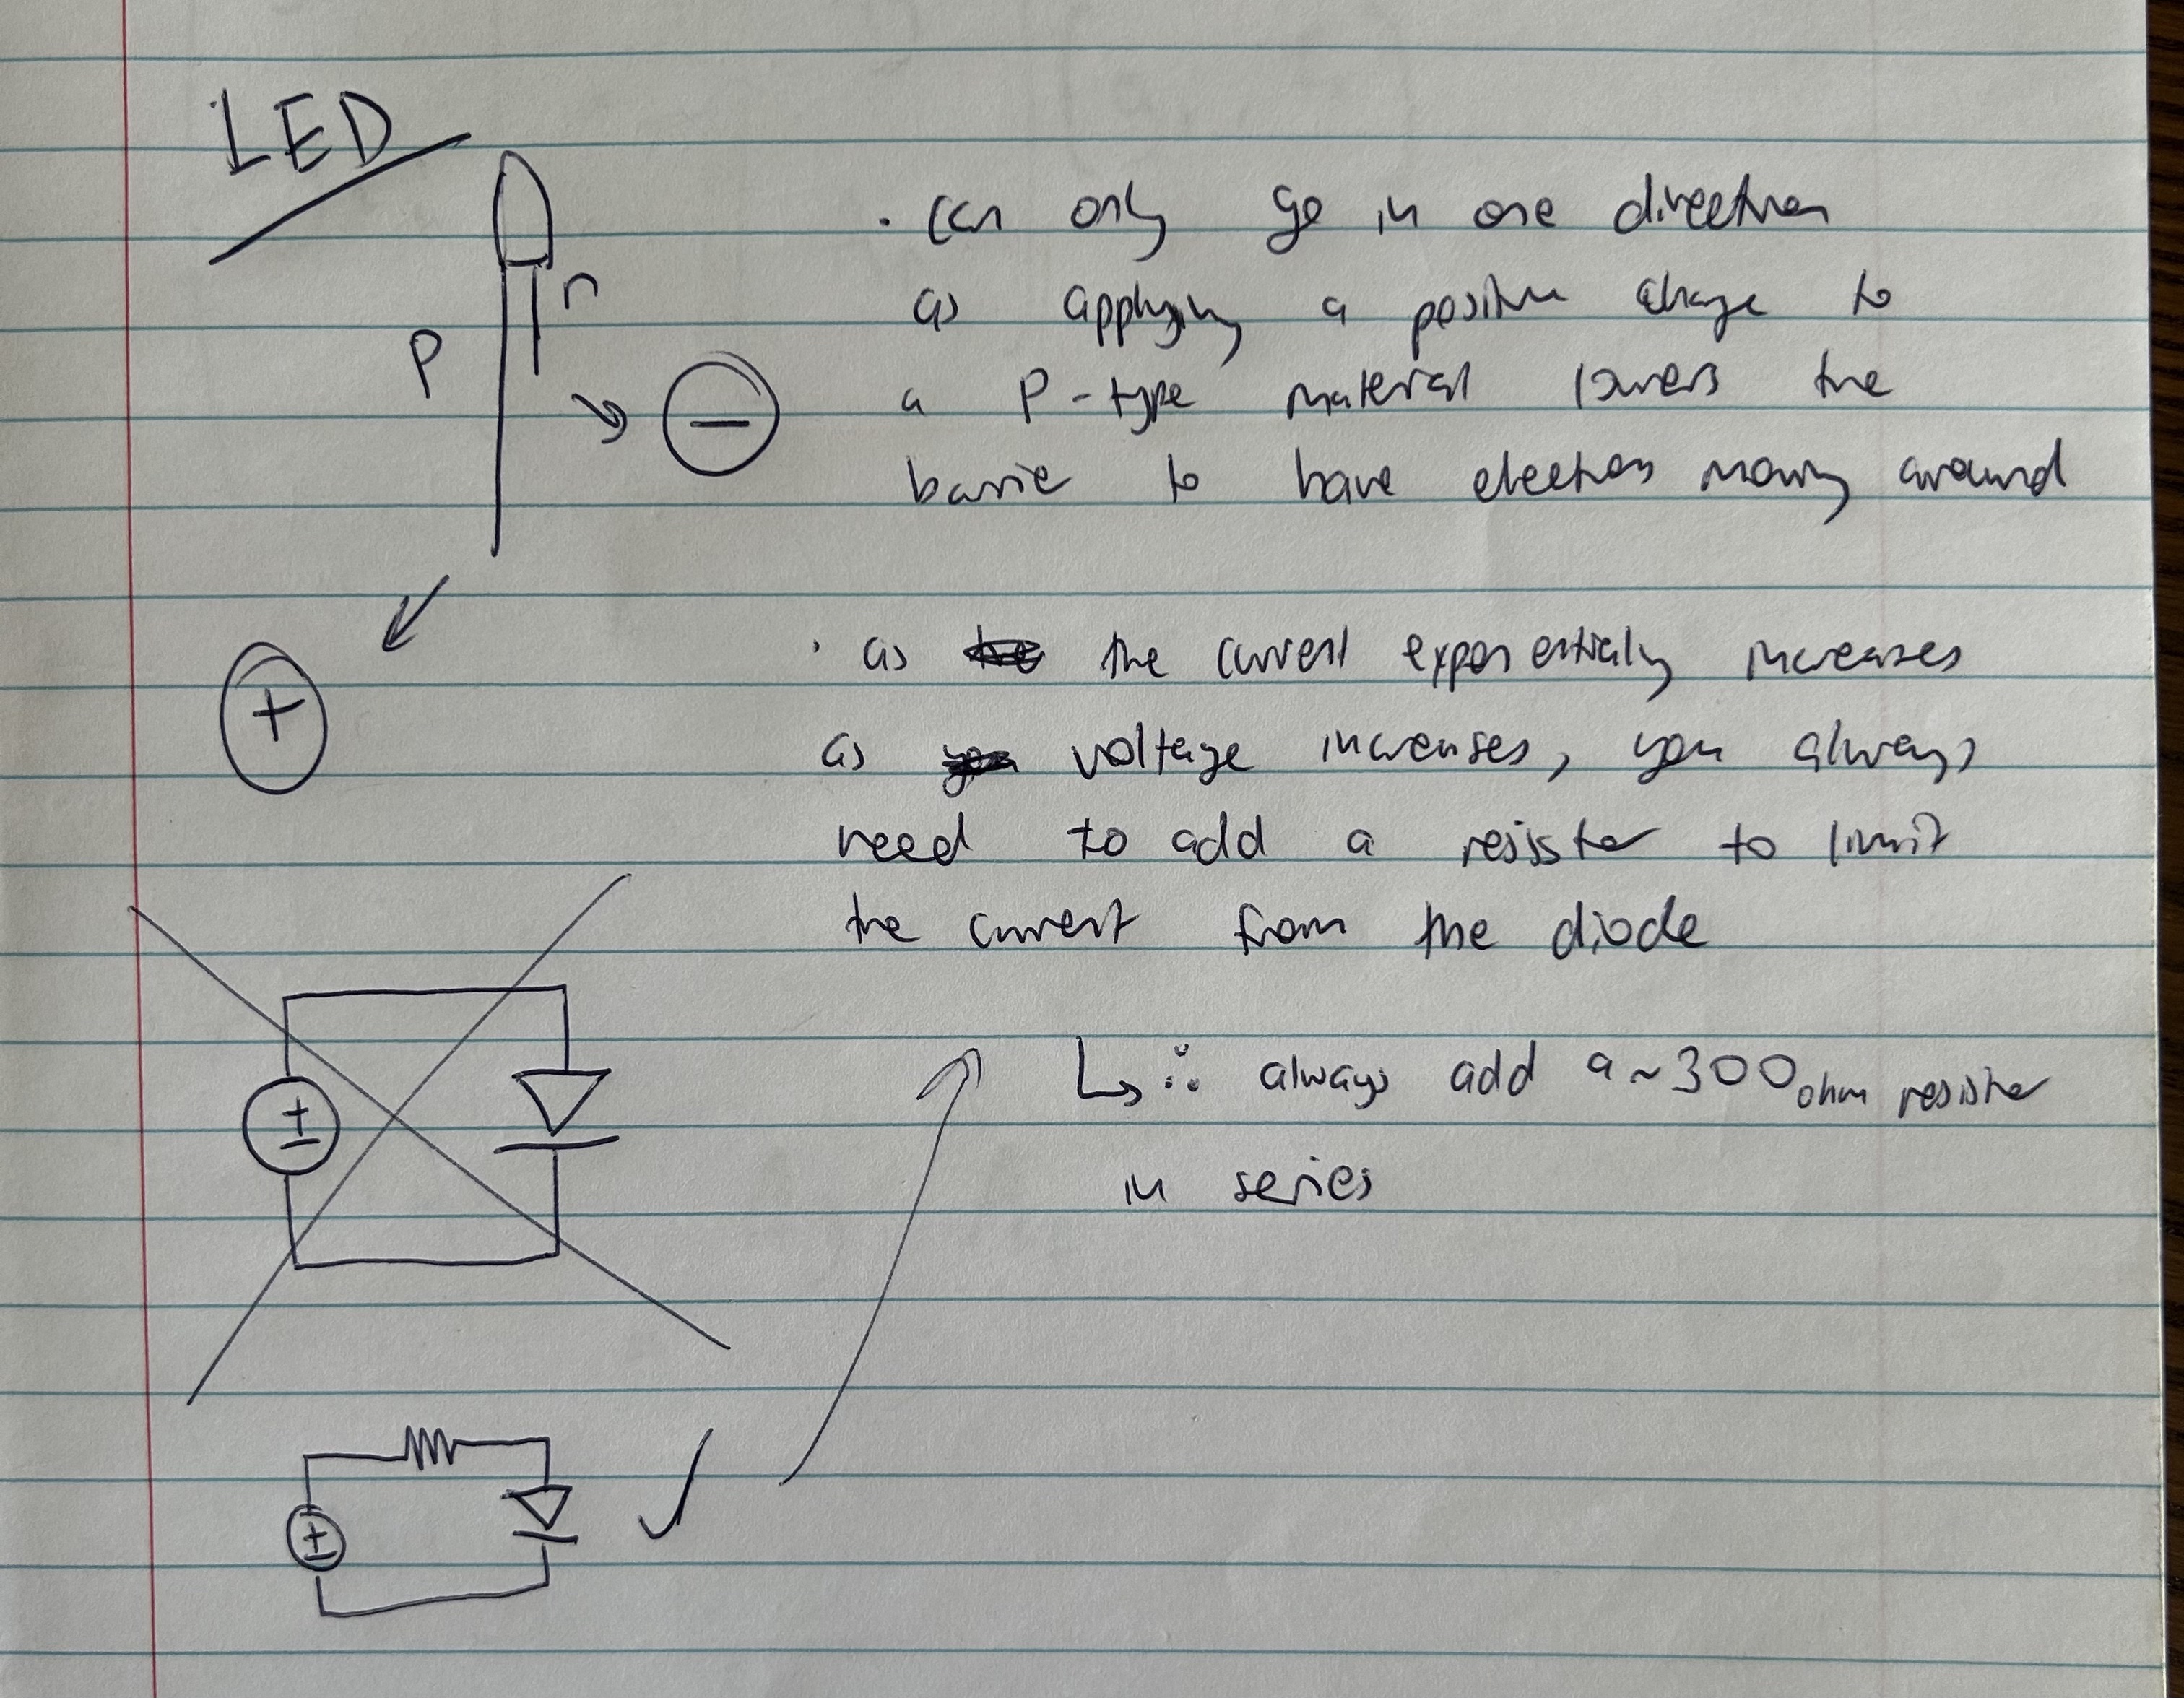 LED
n
P
−
+
· can only go in one direction
as applying a positive charge to
a P-type material lowers the
barrier to have electrons moving around
· as the current exponentially increases
as voltage increases, you always
need to add a resistor to limit
the current from the diode
↳ ∴ always add a ~300 ohm resistor
in series
±
±